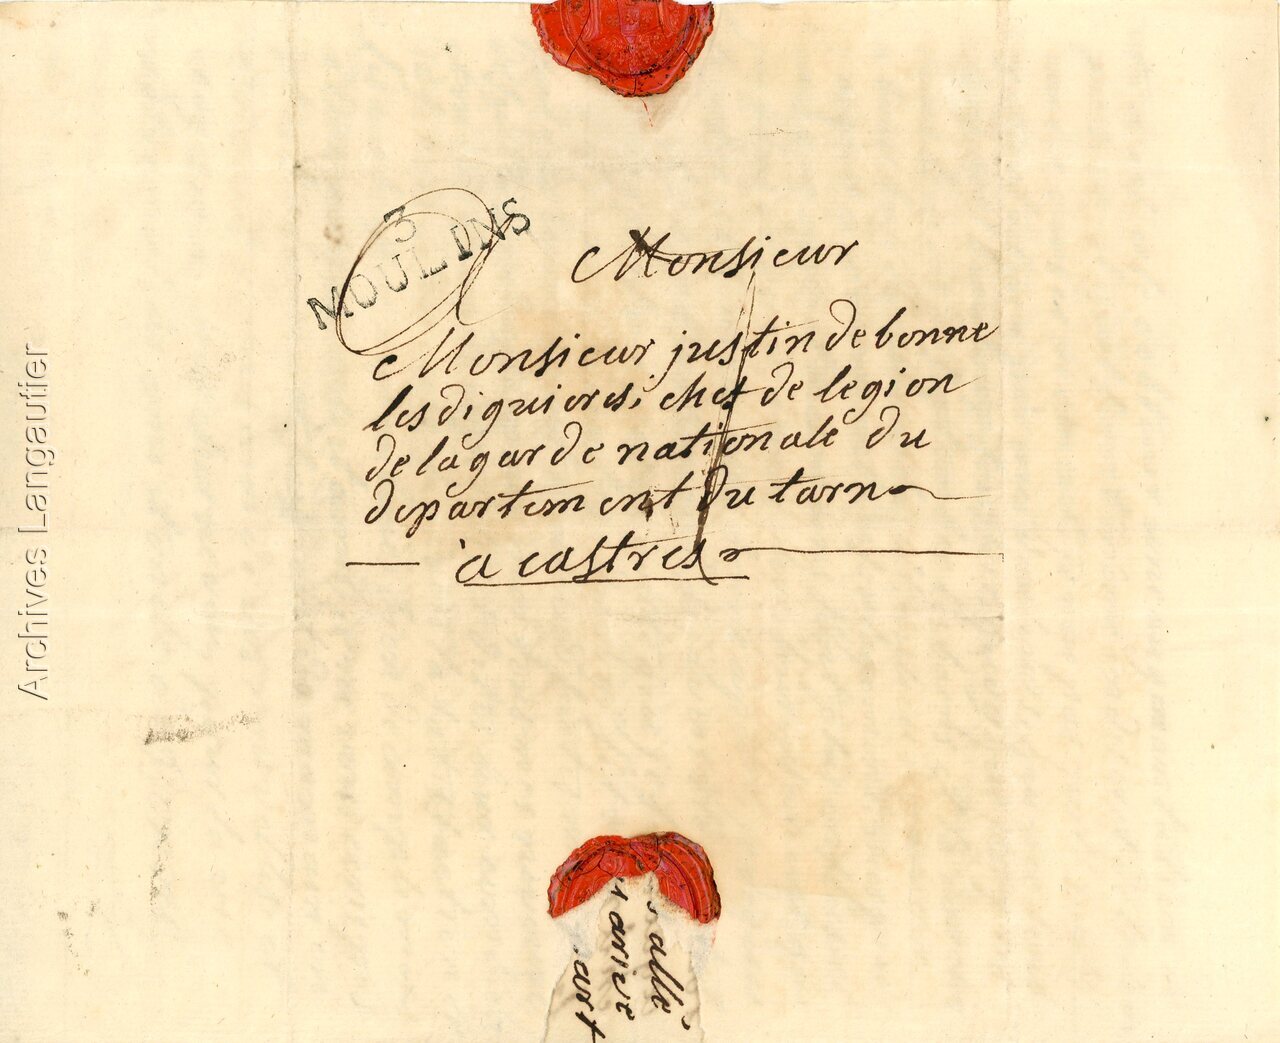 3
MOULINS
Monsieur
Monsieur justin de bonne
lesdiguieres, chef de legion
de la garde nationale du
departement du tarn
à castres
allé
arive
art
Archives Langautier